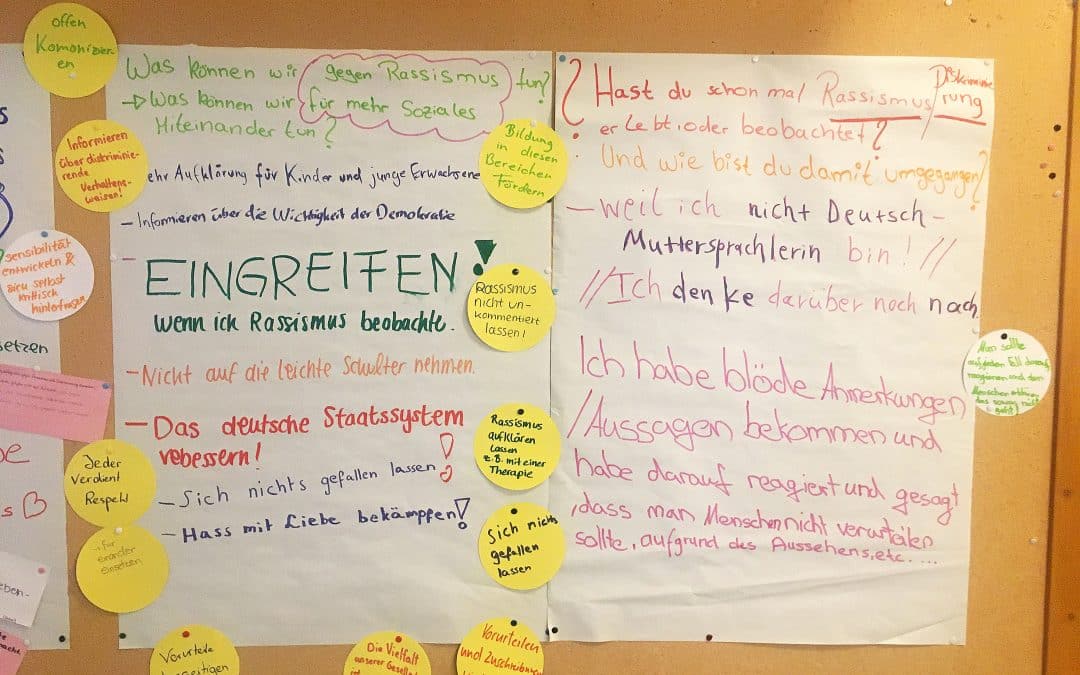 offen
Komonizier-
en
Informieren
über diskriminie-
rende
Verhaltens-
weisen!
sensibilität
entwickeln &
sich selbst
kritisch
hinterfragen
etzen
Jeder
Verdient
Respekt
..für
einander
einsetzen
Was können wir gegen Rassismus tun?
→ Was können wir für mehr Soziales
Miteinander tun?
ehr Aufklärung für Kinder und junge Erwachsene
- Informieren über die Wichtigkeit der Demokratie
- EINGREIFEN!
wenn ich Rassismus beobachte.
- Nicht auf die leichte Schulter nehmen.
- Das deutsche Staatssystem
vebessern!
- Sich nichts gefallen lassen!
- Hass mit Liebe bekämpfen!
Bildung
in diesen
Bereichen
Fördern
Rassismus
nicht un-
kommentiert
lassen!
Rassismus
aufklären
lassen
z.B. mit einer
Therapie
Sich nichts
gefallen
lassen
Vorurteile
Die Vielfalt
unserer Gesell
Vorurteilen
und Zuschreibun
? Hast du schon mal Rassismus/Diskriminie
rung
erlebt, oder beobachtet?
Und wie bist du damit umgegangen?
- weil ich nicht Deutsch-
Muttersprachlerin bin! //
// Ich denke darüber noch nach.
Ich habe blöde Anmerkungen
/Aussagen bekommen und
habe darauf reagiert und gesagt
, dass man Menschen nicht verurteilen
sollte, aufgrund des Aussehens, etc. ...
Man sollte
auf jeden Fall darauf
reagieren und den
Menschen erklären
das sowas nicht
geht!